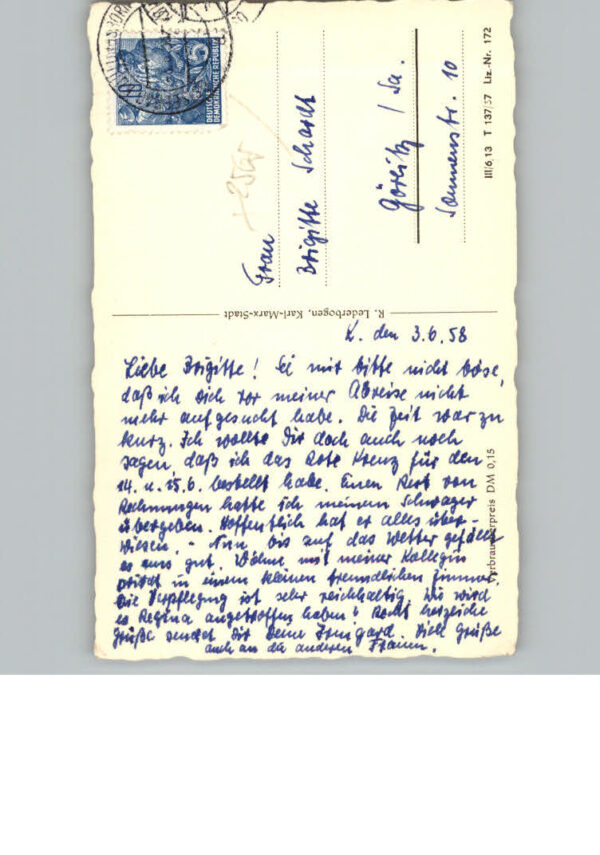 K. den 3.6.58
Liebe Brigitte! Sei mir bitte nicht böse,
daß ich dich vor meiner Abreise nicht
mehr aufgesucht habe. Die Zeit war zu
kurz. Ich wollte Dir doch auch noch
sagen, daß ich das Rote Kreuz für den
14. u. 15.6. bestellt habe. Einen Rest von
Rechnungen hatte ich meinem Schwager
übergeben. Hoffentlich hat er alles über-
wiesen. - Nun, bis auf das Wetter gefällt
es uns gut. Wohne mit meiner Kollegin
privat in einem kleinen freundlichen Zimmer.
Die Verpflegung ist sehr reichhaltig. Wie wird
es Regina angetroffen haben? Recht herzliche
Grüße sendet Dir Deine Irmgard. Viele Grüße
auch an die anderen Frauen.
R. Lederbogen, Karl-Marx-Stadt
Frau
Brigitte Schardt
Görlitz / Sa.
Sonnenstr. 10
III/6/13 T 137/57 Liz.-Nr. 172
Verbraucherpreis DM 0,15
DEUTSCHE
DEMOKRATISCHE REPUBLIK